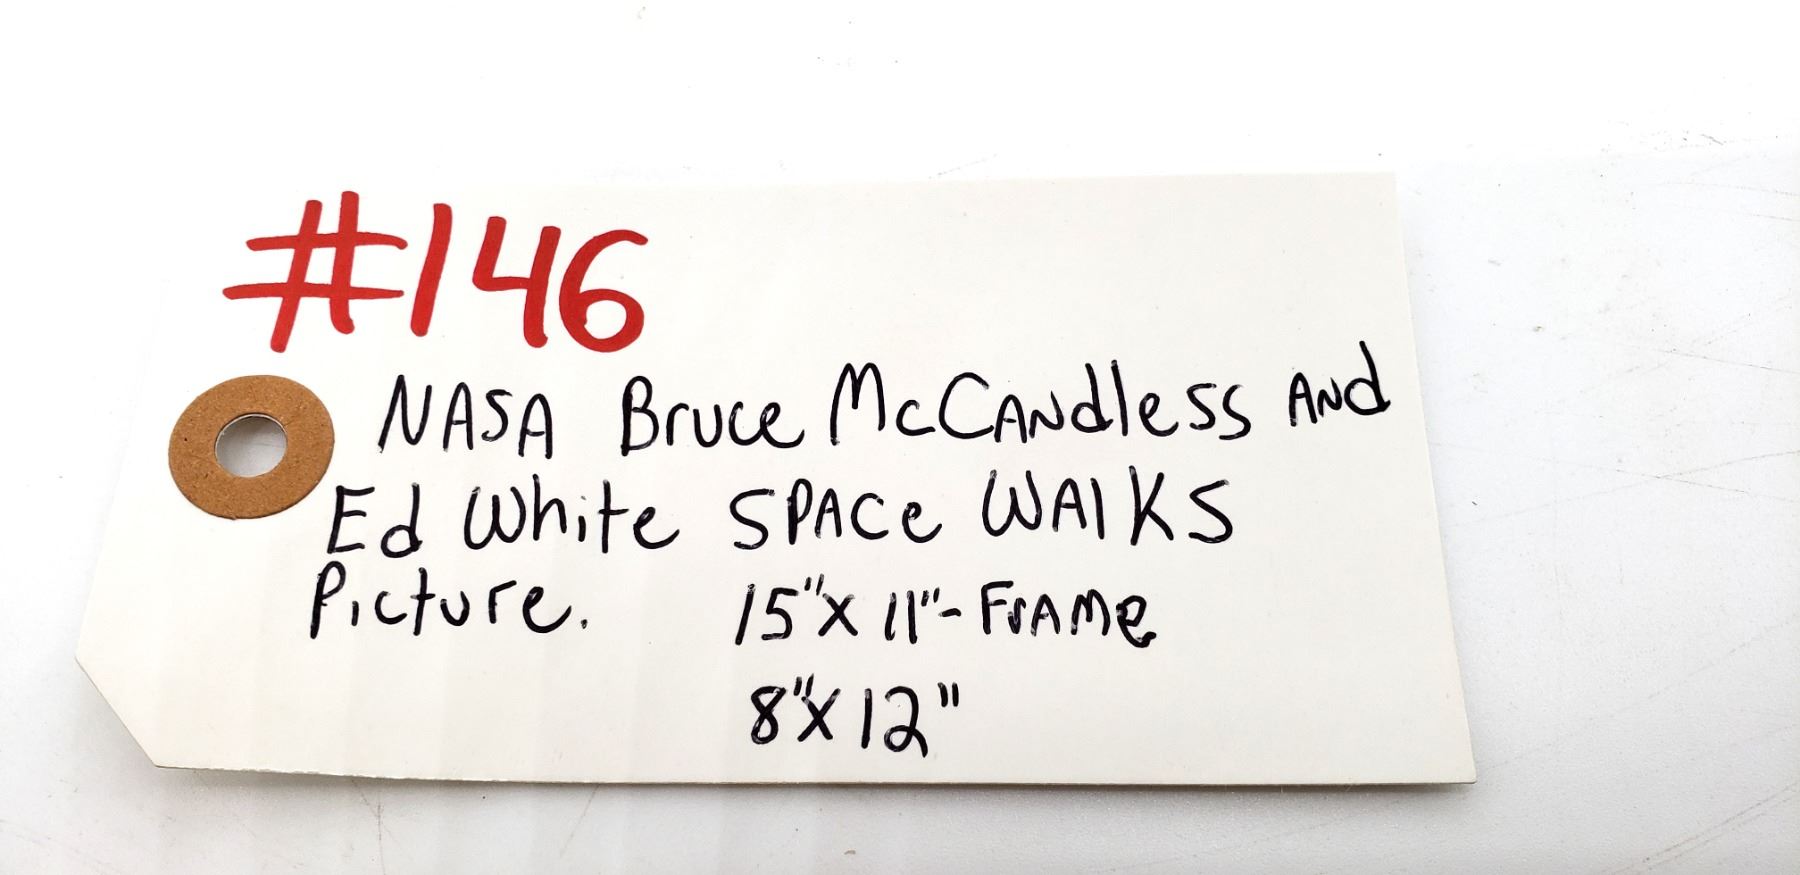 #146
NASA Bruce McCandless And
Ed White Space Walks
Picture. 15"x 11"- Frame
8"x 12"